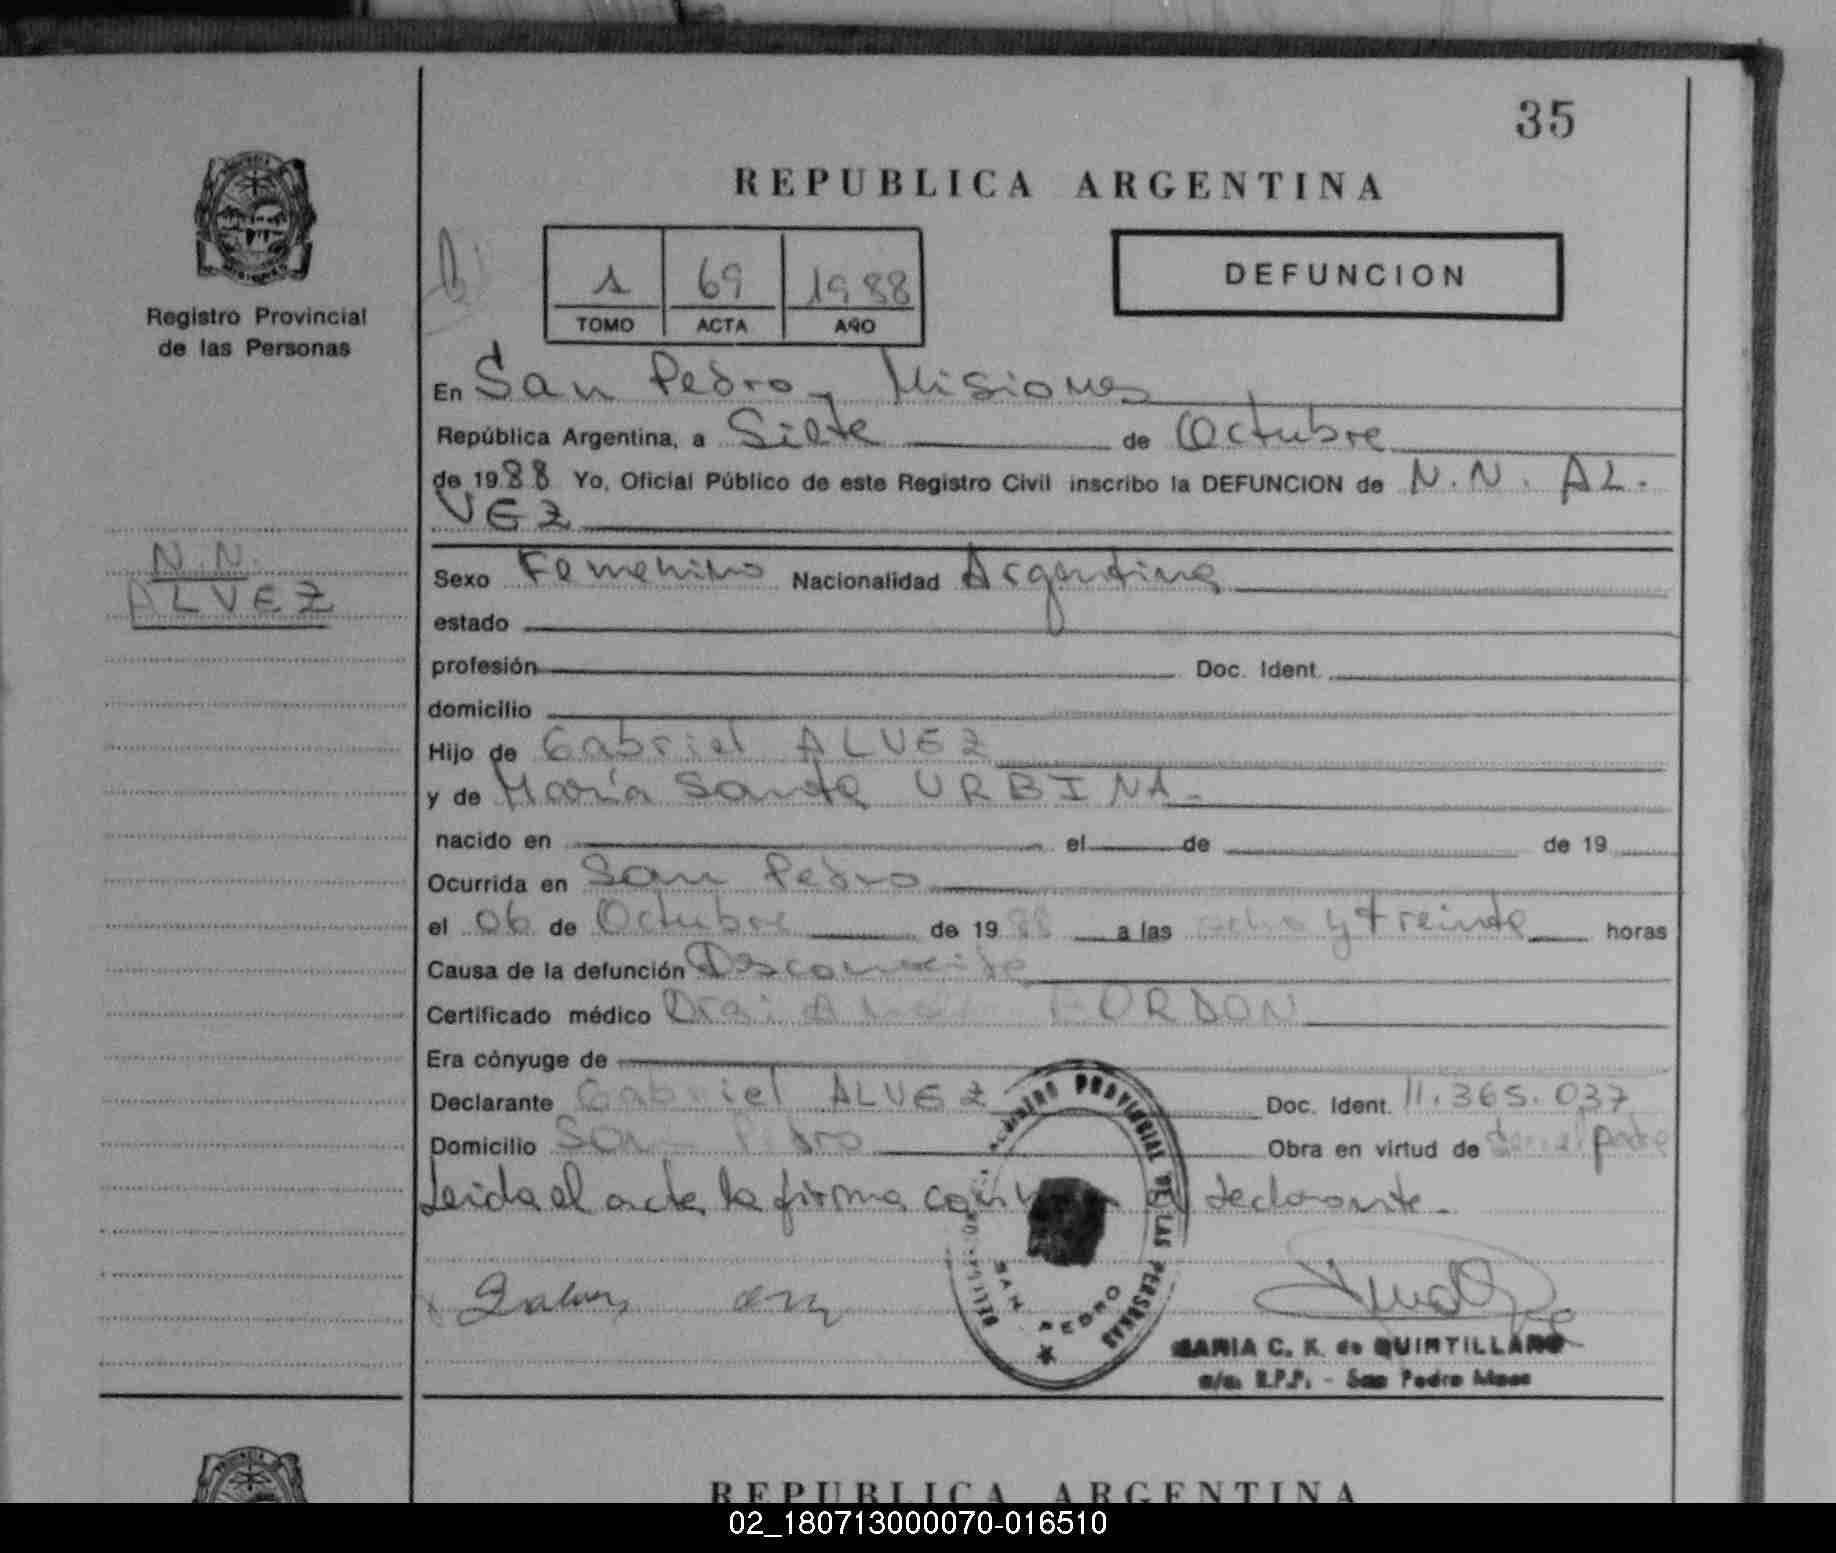 35
REPUBLICA ARGENTINA
Registro Provincial
de las Personas
1 69 1988
TOMO ACTA AÑO
DEFUNCION
En San Pedro, Misiones
República Argentina, a Siete de Octubre
de 1988 Yo, Oficial Público de este Registro Civil inscribo la DEFUNCION de N.N. AL-
VEZ
N.N.
ALVEZ
Sexo Femenino Nacionalidad Argentina
estado
profesión Doc. Ident.
domicilio
Hijo de Gabriel ALVEZ
y de María Santa URBINA.
nacido en el de de 19
Ocurrida en San Pedro
el 06 de Octubre de 1988 a las ocho y treinta horas
Causa de la defunción Desconocida
Certificado médico Dra:
Era cónyuge de
Declarante Gabriel ALVEZ Doc. Ident. 11.365.037
Domicilio San Pedro Obra en virtud de ser el padre
Leida el acta la firma declarante.
REGISTRO PROVINCIAL DE LAS PERSONAS
SAN PEDRO
MARIA C. K. de QUINTILLANO
R.P.P. - San Pedro Mnes
REPUBLICA ARGENTINA
02_180713000070-016510